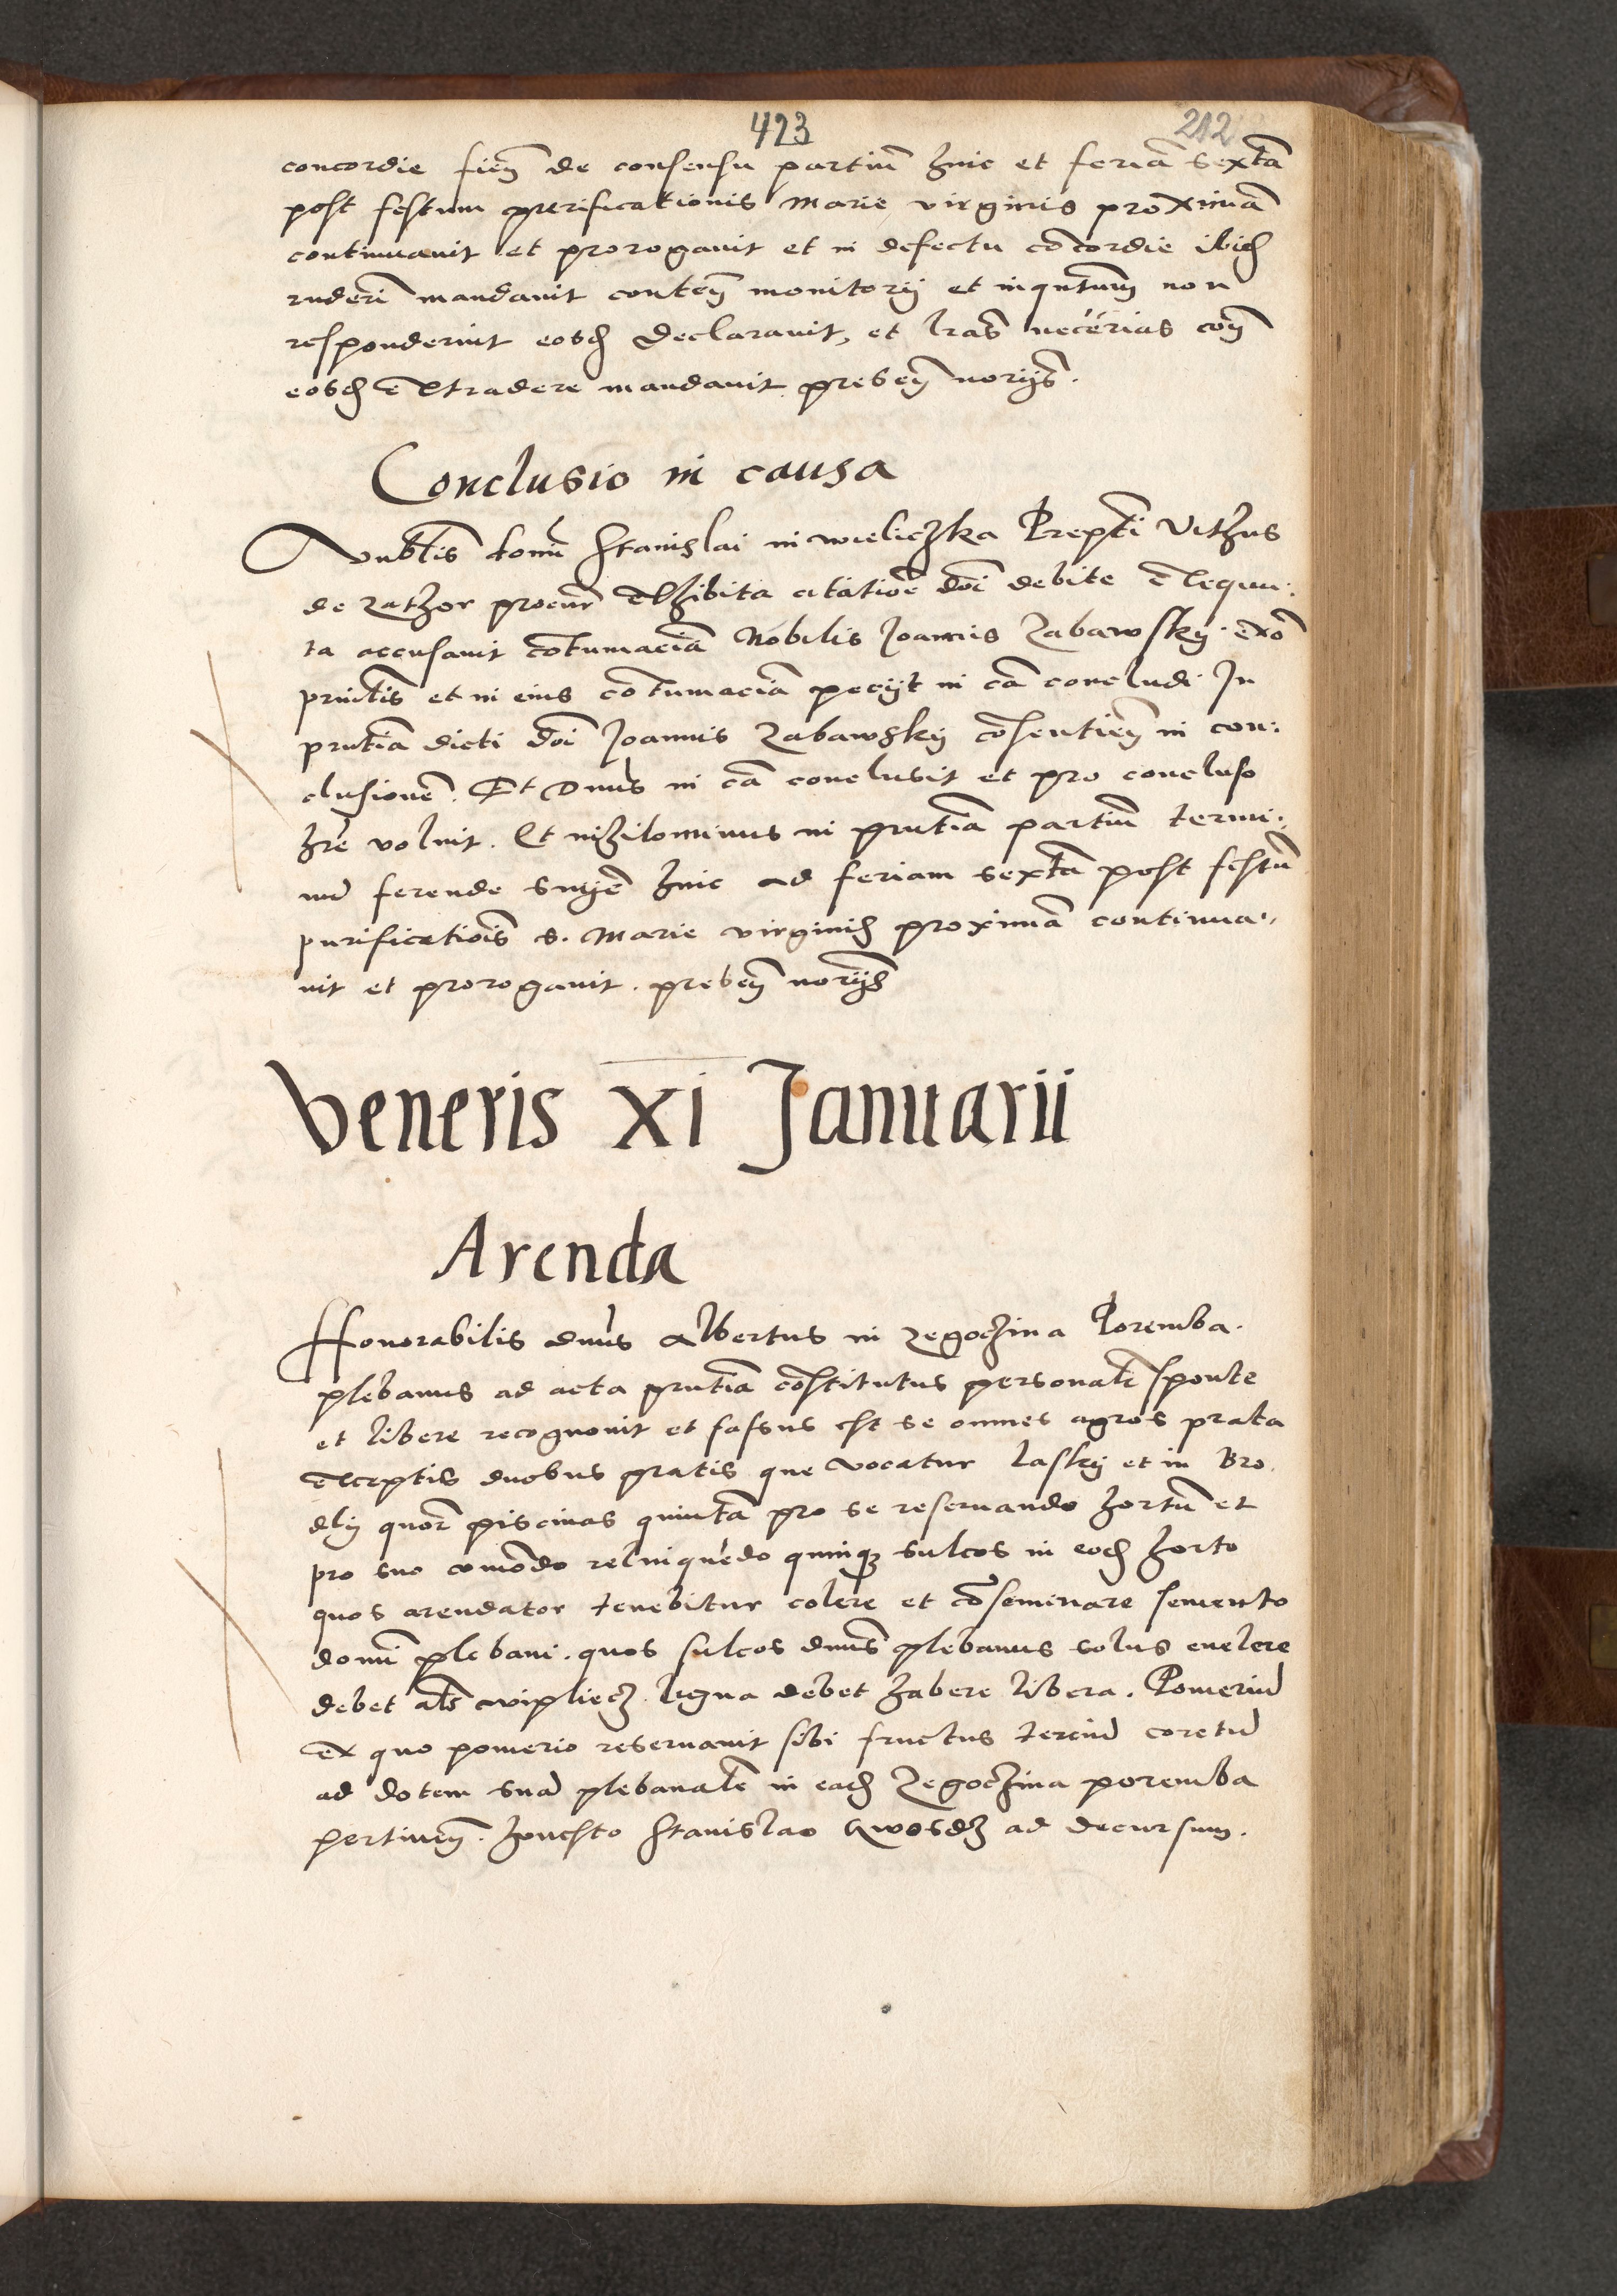 423
212
concordie fieñ de consensu partiũ hinc et feriã sextã
post festum purificationis Marie virginis proximã
continuavit et prorogavit et in defectu cõcordie ibidẽ
rñderi mandavit contẽ monitorij et inqntum non
responderint eosdẽ declaravit, et lras neccrias coñ
eosdẽ extradere mandavit preseñ norijs.
Conclusio in causa
stanislai in wieliczka Prepti
de Zathor procur exhibita citatiõe dõi debite exequu:
ta accusavit cõtumaciã Nobilis Joannis Zabawsky exõ
et in eius cõtumaciã pecijt in cã concludi. In
pntiã dicti dõi Joannis Zabawsky cõsentieñ in con:
clusionẽ. Et Dnus in cã conclusit et pro concluso
hrẽ voluit. Et nihilominus in pntiã partiũ termi:
nũ ferende snije hinc ad feriam sextã post festũ
purificatiois s. Marie virginis proximã continua:
vit et prorogavit. preseñ norijs
Veneris xi Januarii
Arenda
Honorabilis dnus Albertus in Zegoczina Poremba.
plebanus ad acta pntiã cõstitutus personalr sponte
et libere recognovit et fassus est se omnes agros prata
exceptis duobus pratis que vocatur lasky et in Bro
dly quor piscinas quintã pro se reservando hortũ et
pro suo comõdo relinquẽdo quinq sulcos in eodẽ horto
quos arendator tenebitur colere et cõseminare semento
domi plebani. quos sulcos dnus plebanus solus evelere
debet als wipliecz. ligna debet habere libera. Pomeriũ
ex quo pomerio reservavit sibi fructus terciũ coretũ
ad dotem suã plebanalẽ in eadẽ Zegoczina poremba
pertineñ. honesto Stanislao Gwosdz ad decursum.